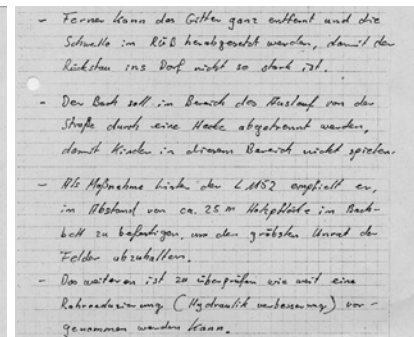 - Ferner kann das Gitter ganz entfernt und die
Schwelle im RÜB herabgesetzt werden, damit der
Rückstau ins Dorf nicht so stark ist.
- Der Bach soll im Bereich des Auslauf von der
Straße durch eine Hecke abgetrennt werden,
damit Kinder in diesem Bereich nicht spielen.
- Als Maßnahme hinter der L 1152 empfielt er,
im Abstand von ca. 25 m Holzpflöcke im Bach-
bett zu befestigen, um den gröbsten Unrat der
Felder abzuhalten.
- Des weiteren ist zu überprüfen wie weit eine
Rohrreduzierung (Hydraulik verbesserung) vor-
genommen werden kann.